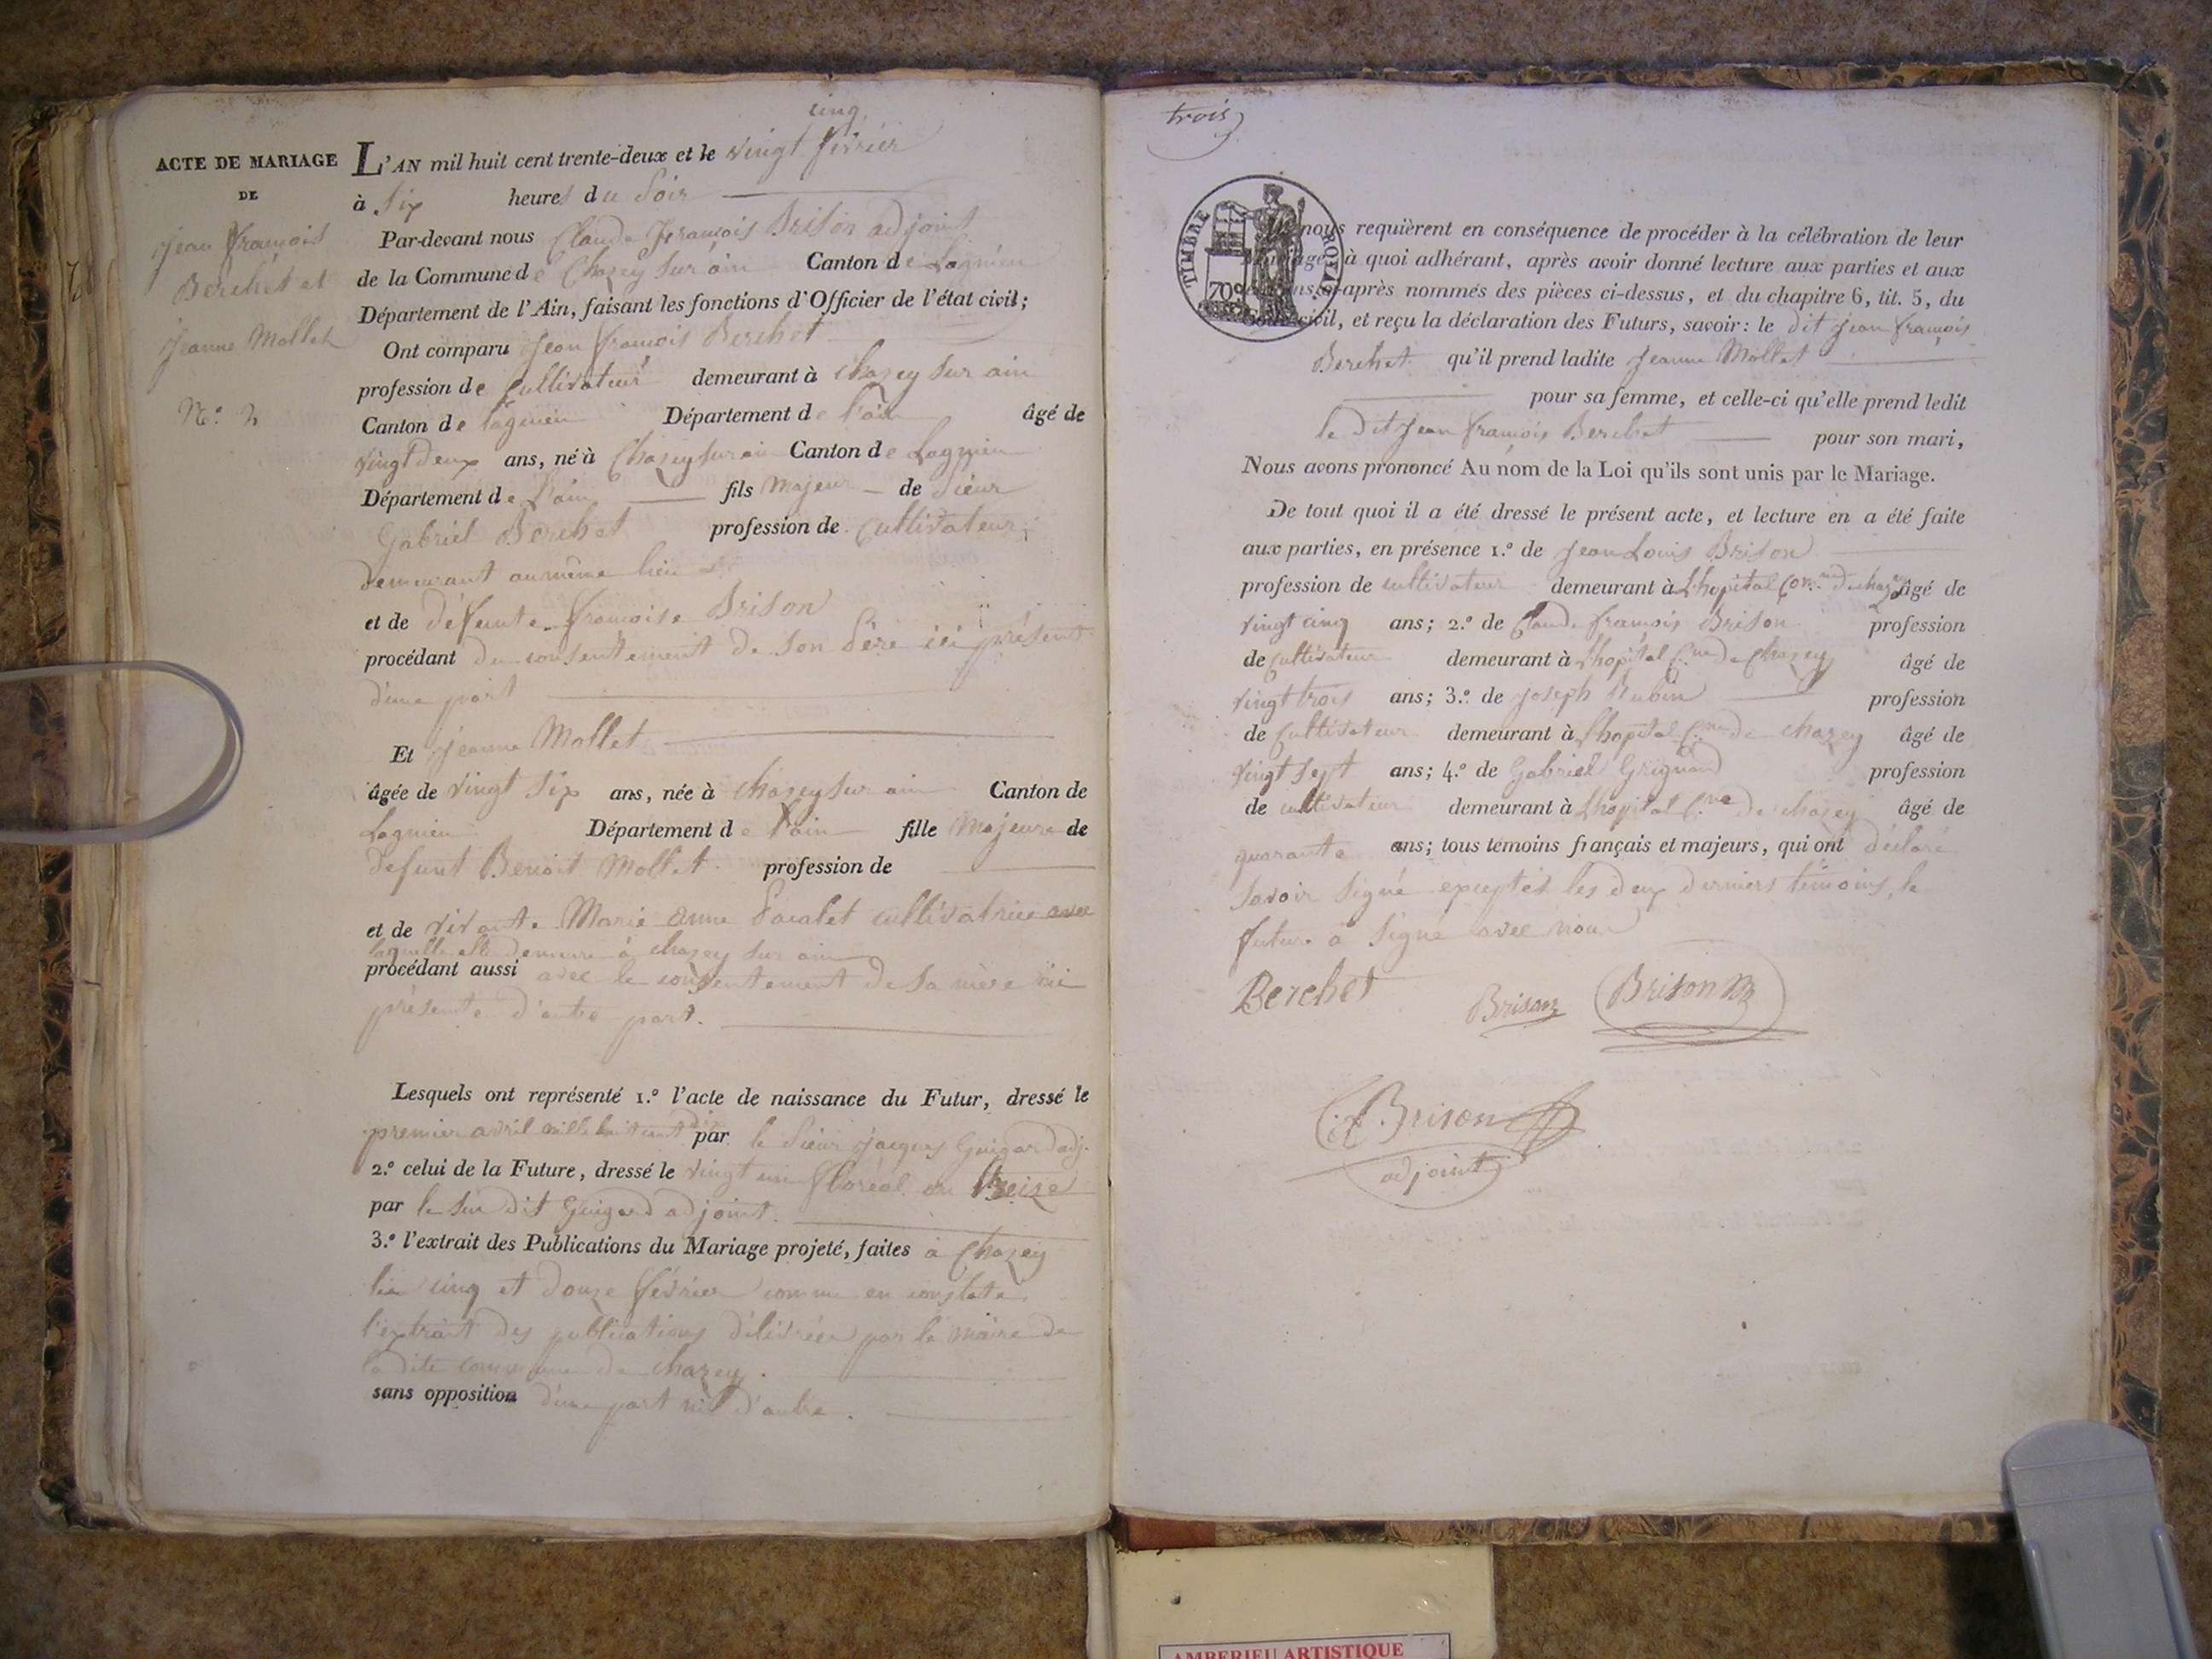 ACTE DE MARIAGE
DE
Jean François
Berchet et
Jeanne Mollet
N.º 2
cinq
L'AN mil huit cent trente-deux et le vingt février
à Six heures du Soir
Par-devant nous Claude François Brison adjoint
de la Commune de Chazey Sur ain Canton de Lagnieu
Département de l'Ain, faisant les fonctions d'Officier de l'état civil;
Ont comparu Jean françois Berchet
profession de Cultivateur demeurant à chazey Sur ain
Canton de lagnieu Département de l'ain âgé de
vingt deux ans, né à Chazey sur ain Canton de Lagnieu
Département de l'ain fils Majeur de Sieur
Gabriel Berchet profession de Cultivateur
demeurant au même lieu
et de défunte françoise Brison
procédant du consentement de son Père ici présent
d'une part
Et Jeanne Mollet
âgée de vingt Six ans, née à chazey sur ain Canton de
Lagnieu Département de l'ain fille Majeure de
defunt Benoit Mollet profession de
et de vivante Marie Anne Pacalet cultivatrice avec
laquelle elle demeure à chazey Sur ain
procédant aussi avec le consentement de sa mère ici
présente d'autre part.
Lesquels ont représenté 1.º l'acte de naissance du Futur, dressé le
premier avril mille huit cent dix par le Sieur Jacques Guigard adj.
2.º celui de la Future, dressé le vingt un floréal an treize
par le Sus dit Guigard adjoint.
3.º l'extrait des Publications du Mariage projeté, faites à Chazey
les cinq et douze février comme en constate
l'extrait des publications délivrées par le maire de
la dite commune de chazey.
sans opposition d'une part ni d'autre.
trois
TIMBRE ROYAL
70
nous requièrent en conséquence de procéder à la célébration de leur
à quoi adhérant, après avoir donné lecture aux parties et aux
ci-après nommés des pièces ci-dessus, et du chapitre 6, tit. 5, du
civil, et reçu la déclaration des Futurs, savoir: le dit Jean françois
Berchet qu'il prend ladite Jeanne Mollet
pour sa femme, et celle-ci qu'elle prend ledit
le dit Jean françois Berchet pour son mari,
Nous avons prononcé Au nom de la Loi qu'ils sont unis par le Mariage.
De tout quoi il a été dressé le présent acte, et lecture en a été faite
aux parties, en présence 1.º de Jean Louis Brison
profession de cultivateur demeurant à Lhopital Com.ne de chazey âgé de
vingt cinq ans; 2.º de Claude françois Brison profession
de Cultivateur demeurant à Lhopital C.ne de Chazey âgé de
vingt trois ans; 3.º de Joseph Rubin profession
de Cultivateur demeurant à Lhopital C.ne de chazey âgé de
vingt Sept ans; 4.º de Gabriel Grignard profession
de cultivateur demeurant à Lhopital C.ne de chazey âgé de
quarante ans; tous témoins français et majeurs, qui ont déclaré
Savoir Signé exceptés les deux derniers témoins, le
futur a Signé avec nous
Berchet Brison Brison
C.F. Brison
adjoint
AMBERIEU ARTISTIQUE